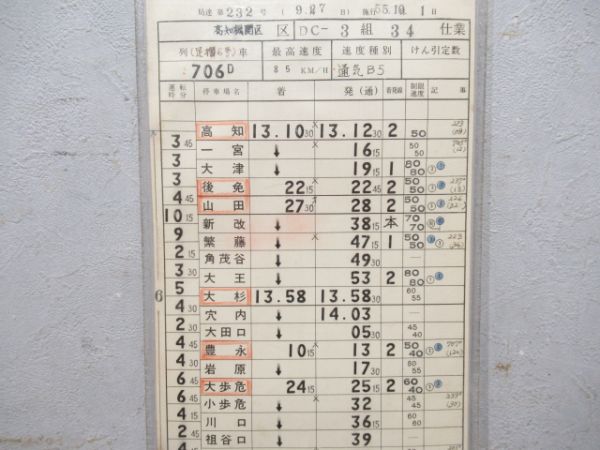 局達第232号 (9.27日) 施行55.10.1日
高知機関区 区 DC- 3組 34 仕業
列(足摺6号)車 最高速度 速度種別 けん引定数
706D 85 KM/H 通気B5
運転時分 停車場名 着 発(通) 着発線 制限速度 記事
高知 13.10 30 13.12 30 2 50
3 45 一宮 ↓ 16 15 50 50
3 大津 ↓ 19 15 1 80 80
3 後免 22 15 22 45 2 50 50
4 45 山田 27 30 28 2 50 50
10 15 新改 ↓ 38 15 本 70 70
9 繁藤 ↓ 47 15 1 50 50
2 15 角茂谷 ↓ 49 30 —
3 30 大王 ↓ 53 2 80 80
5 大杉 13.58 13.58 30 60 55
6
4 30 穴内 ↓ 14.03 —
2 30 大田口 ↓ 05 30 45 40
4 45 豊永 10 15 13 2 50 40
4 30 岩原 ↓ 17 30 50 55
6 45 大歩危 24 15 25 15 2 60 40
6 45 小歩危 ↓ 32 45 45
4 15 川口 ↓ 36 15 60 55
2 45 祖谷口 ↓ 39 —